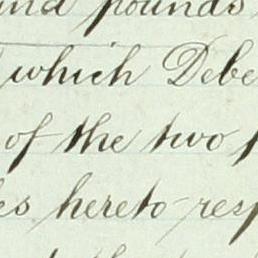 pounds
which Debe
of the two
hereto resp